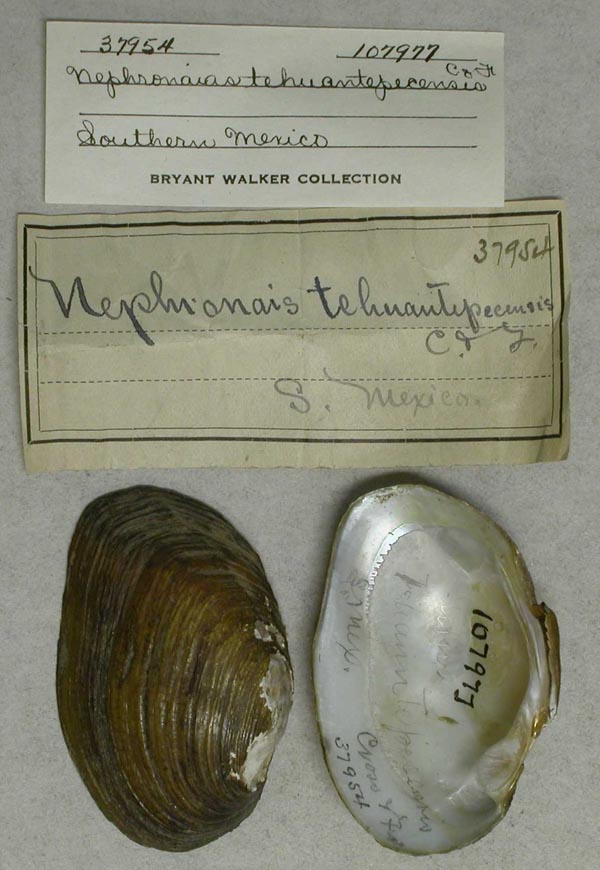 37954 107977
Nephronaias tehuantepecensis C & F
Southern Mexico
BRYANT WALKER COLLECTION
37954
Nephronais tehuantepecensis
C. & F.
S. Mexico.
107977
S. Mex.
Cross & F.
37954